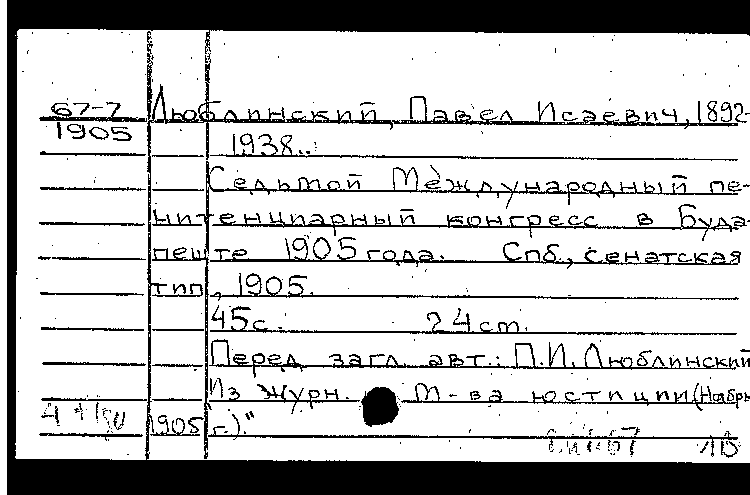 67-7 Люблинский, Павел Исаевич, 1892-
1905 1938..
Седьмой Международный пе-
нитенциарный конгресс в Буда-
пеште 1905 года. Спб., Сенатская
тип., 1905.
45с. 24 cm.
Перед загл. авт.: П.И. Люблинский
Из журн. М-ва юстиции (Ноябрь
1905 г.)."